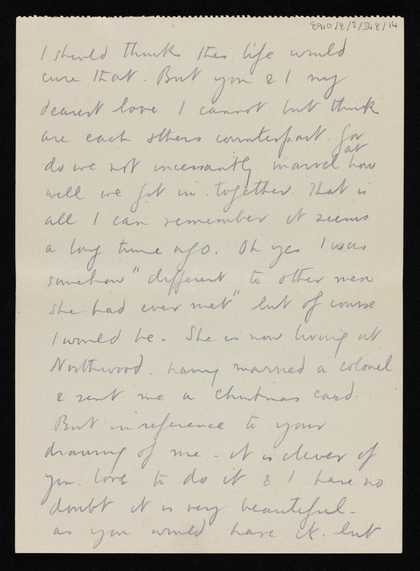 I should think this life would
cure that. But you & I my
dearest love I cannot but think
are each others counterpart. For
do we not incessantly marvel how
at
well we fit in together. That is
all I can remember it seems
a long time ago. Oh yes I was
somehow "different to other men
she had ever met" but of course
I would be. She is now living at
Northwood. having married a colonel
& sent me a Christmas card.
But in reference to your
drawing of me - it is clever of
you. love to do it & I have no
doubt it is very beautiful -
as you would have it. but